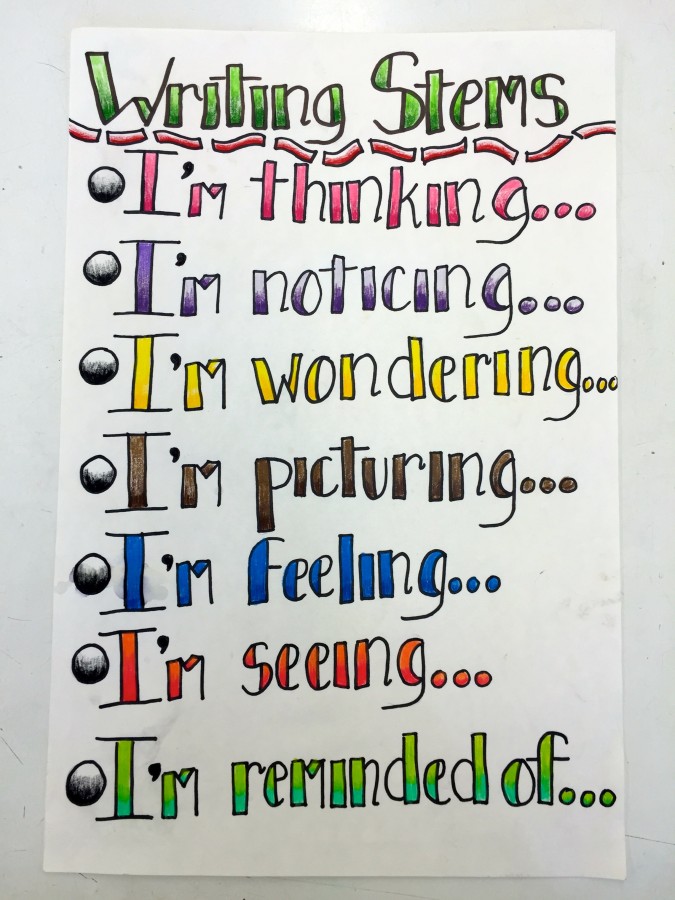 Writing Stems
I'm thinking...
I'm noticing...
I'm wondering...
I'm picturing...
I'm feeling...
I'm seeing...
I'm reminded of...